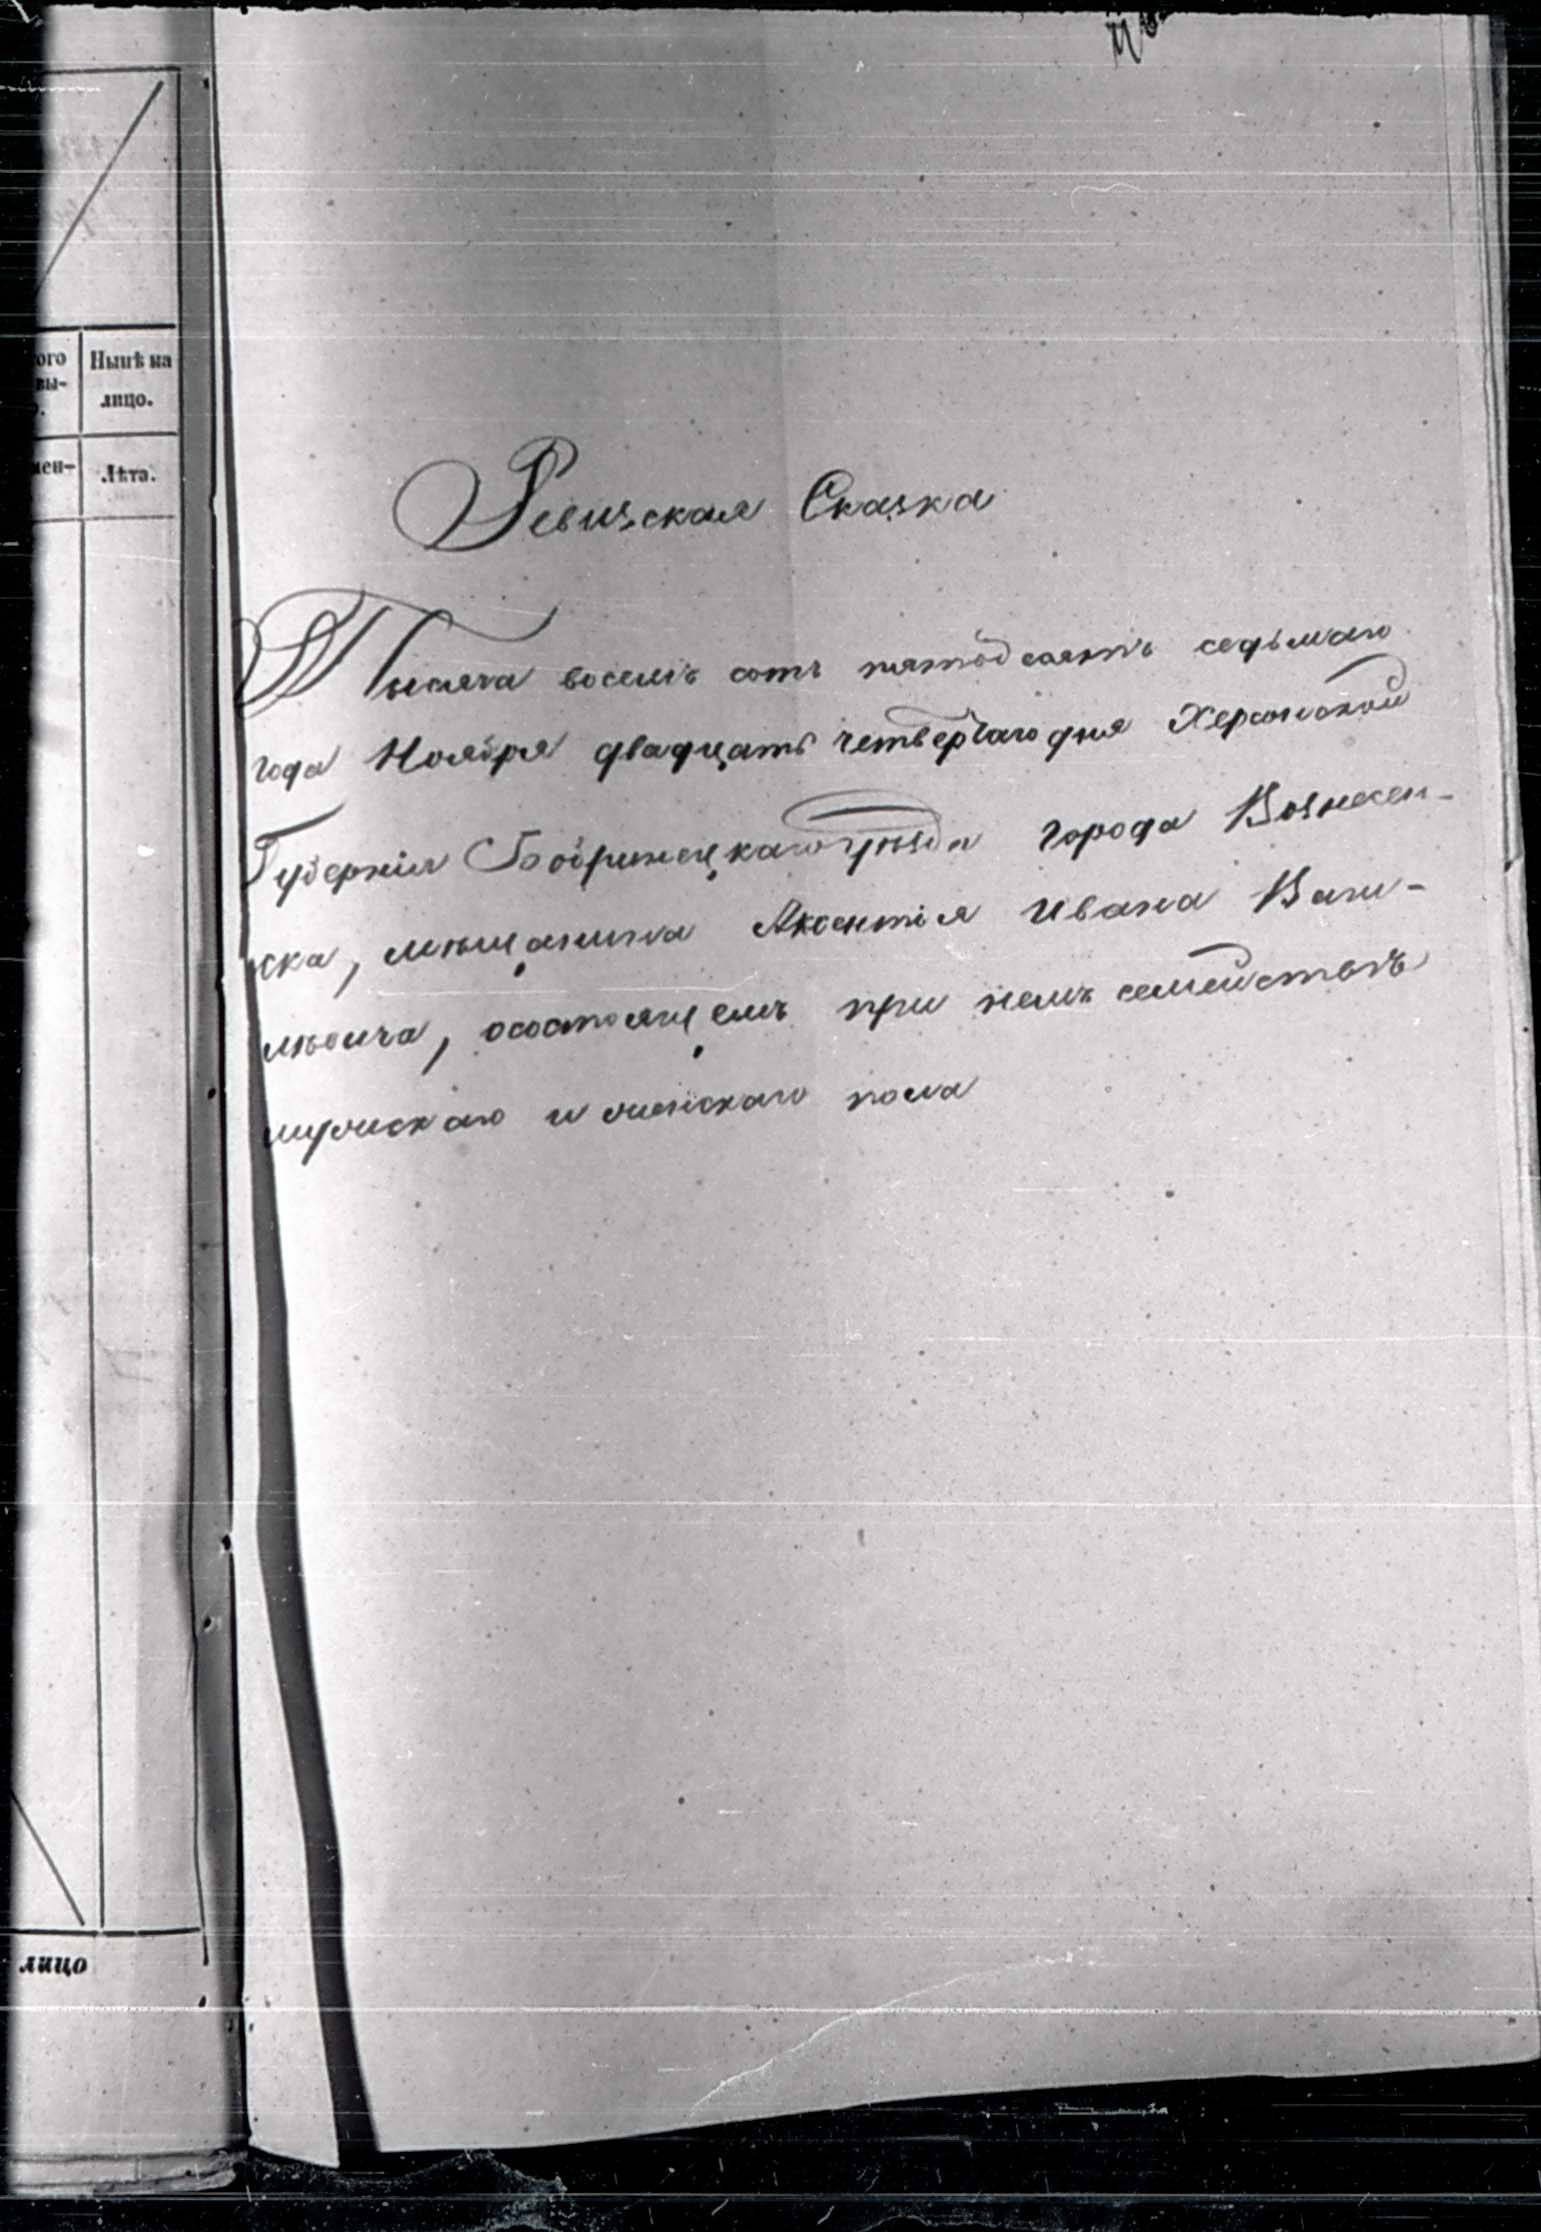 ого
вы-
Нынѣ на
лицо.
мен-
Лѣта.
лицо
Ревизская Сказка
Тысяча восемь сотъ пятодесятъ седьмаго
года Ноября двадцать четвертаго дня Херсонской
Губерніи Бобринецкаго уѣзда города Вознесен-
ска, мѣщанина Аксентія Ивана Васи-
льевича, о состоящемъ при немъ семействѣ
мужскаго и женскаго пола